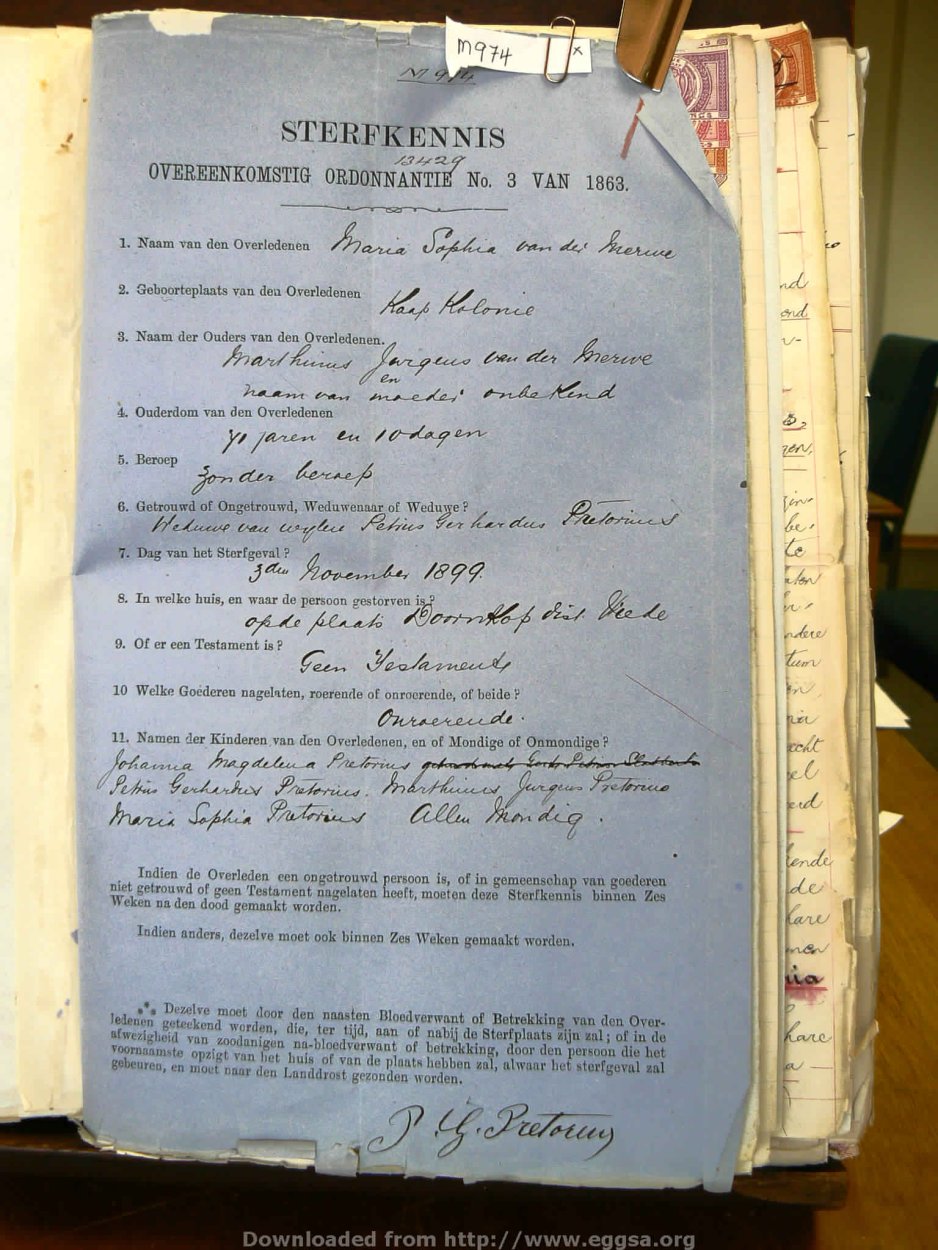 M974 x
M 974
STERFKENNIS
13429
OVEREENKOMSTIG ORDONNANTIE No. 3 VAN 1863.
1. Naam van den Overledenen Maria Sophia van der Merwe
2. Geboorteplaats van den Overledenen
Kaap Kolonie
3. Naam der Ouders van den Overledenen.
Marthinus Jurgens van der Merwe
en
naam van moeder onbekend
4. Ouderdom van den Overledenen
71 jaren en 10 dagen
5. Beroep
zonder beroep
6. Getrouwd of Ongetrouwd, Weduwenaar of Weduwe?
Weduwe van wylen Petrus Gerhardus Pretorius
7. Dag van het Sterfgeval?
3den November 1899.
8. In welke huis, en waar de persoon gestorven is?
op de plaats Doornkop dist. Vrede
9. Of er een Testament is?
Geen Testament
10 Welke Goederen nagelaten, roerende of onroerende, of beide?
Onroerende.
11. Namen der Kinderen van den Overledenen, en of Mondige of Onmondige?
Johanna Magdelena Pretorius
Petrus Gerhardus Pretorius. Marthinus Jurgens Pretorius
Maria Sophia Pretorius Allen Mondig.
Indien de Overleden een ongetrouwd persoon is, of in gemeenschap van goederen
niet getrouwd of geen Testament nagelaten heeft, moeten deze Sterfkennis binnen Zes
Weken na den dood gemaakt worden.
Indien anders, dezelve moet ook binnen Zes Weken gemaakt worden.
⁂ Dezelve moet door den naasten Bloedverwant of Betrekking van den Over-
ledenen geteekend worden, die, ter tijd, aan of nabij de Sterfplaats zijn zal; of in de
afwezigheid van zoodanigen na-bloedverwant of betrekking, door den persoon die het
voornaamste opzigt van het huis of van de plaats hebben zal, alwaar het sterfgeval zal
gebeuren, en moet naar den Landdrost gezonden worden.
P. G. Pretorius
Downloaded from http://www.eggsa.org